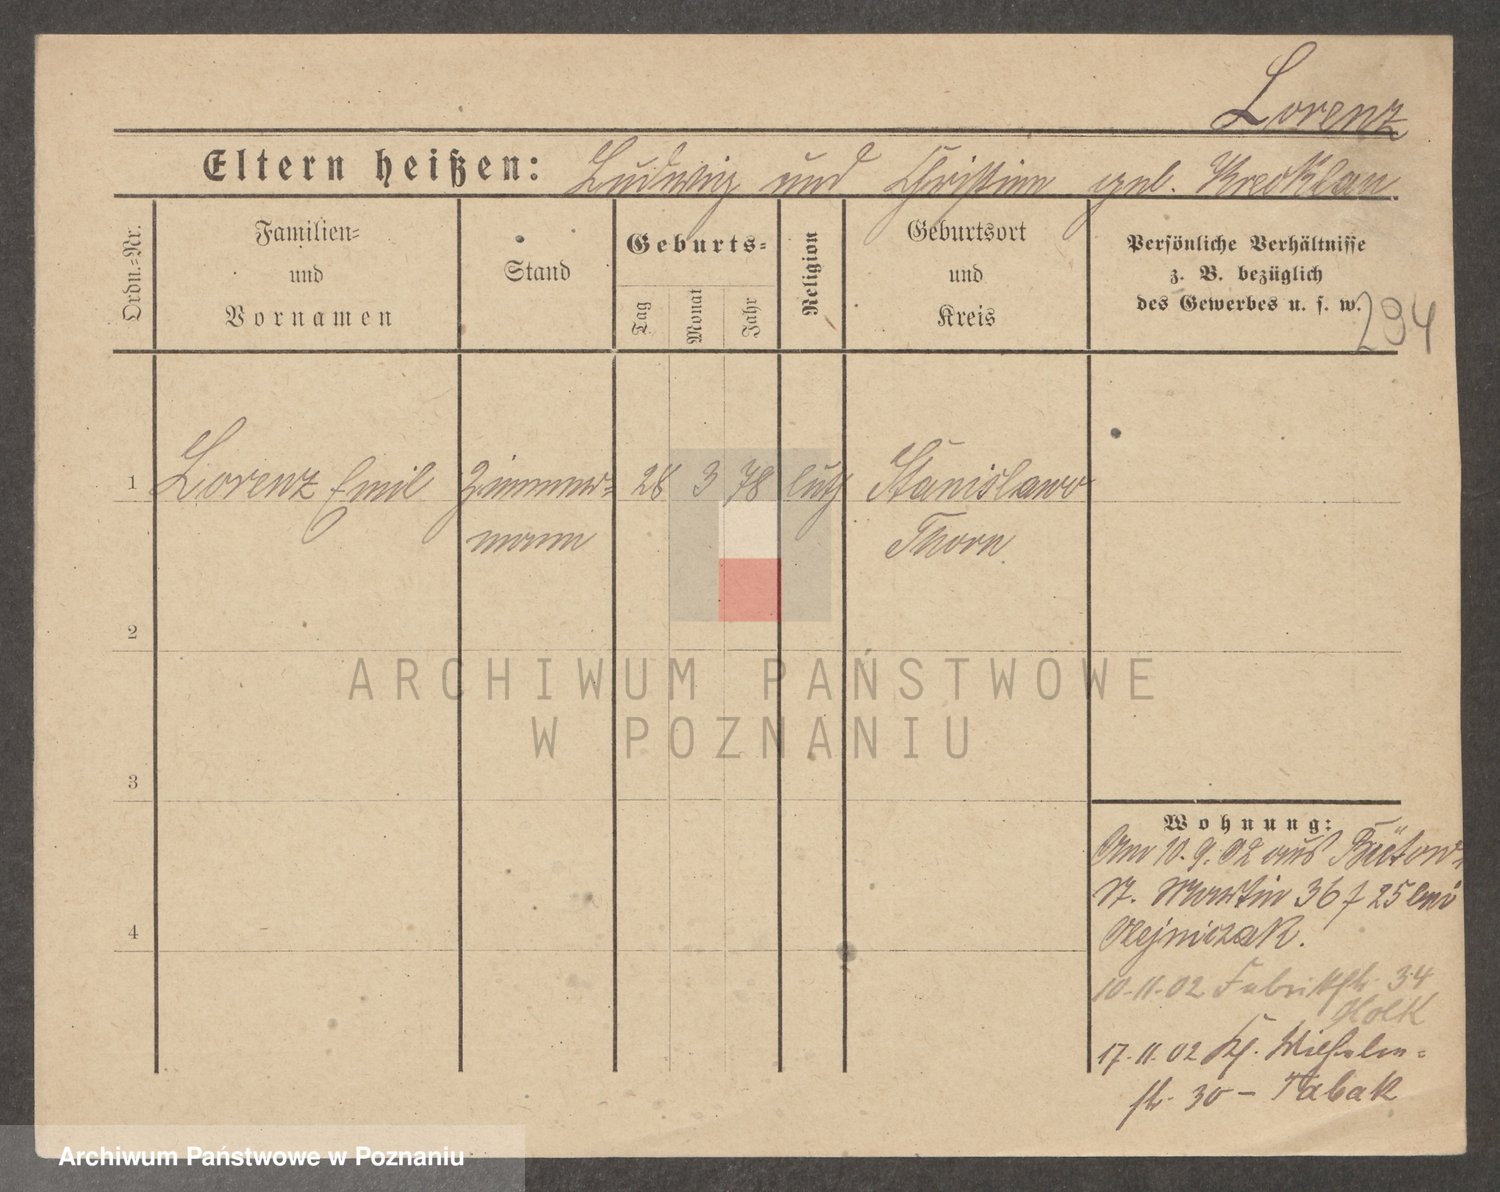 Lorenz
Eltern heißen: Ludwig und Christine geb. Krecklau
Ordn.=Nr.
Familien=
und
Vornamen
Stand
Geburts=
Tag
Monat
Jahr
Religion
Geburtsort
und
Kreis
Persönliche Verhältnisse
z. B. bezüglich
des Gewerbes u. s. w.
294
1 Lorenz Emil Zimmer= 28 3 78 luth Stanislawo
mann Thorn
2
3
4
ARCHIWUM PAŃSTWOWE
W POZNANIU
Wohnung:
Am 10.9.02 aus
St. Martin 36 f 25 bei
Olejniczak.
10-11-02 Fabrikstr. 34
17.11.02 Kl.
str. 30 – Tabak
Archiwum Państwowe w Poznaniu